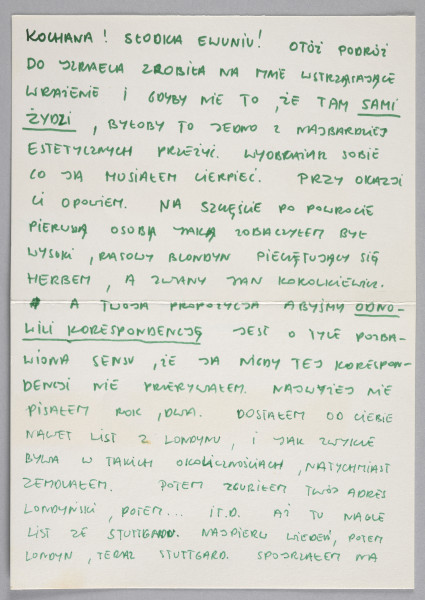 KOCHANA! SŁODKA EWUNIU! OTÓŻ PODRÓŻ
DO IZRAELA ZROBIŁA NA MNIE WSTRZĄSAJĄCE
WRAŻENIE I GDYBY NIE TO, ŻE TAM SAMI
ŻYDZI, BYŁOBY TO JEDNO Z NAJBARDZIEJ
ESTETYCZNYCH PRZEŻYĆ. WYOBRAŻASZ SOBIE
CO JA MUSIAŁEM CIERPIEĆ. PRZY OKAZJI
CI OPOWIEM. NA SZCZĘŚCIE PO POWROCIE
PIERWSZĄ OSOBĄ JAKĄ ZOBACZYŁEM BYŁ
WYSOKI, RASOWY BLONDYN PIECZĘTUJĄCY SIĘ
HERBEM, A ZWANY JAN KOKOLKIEWICZ.
A TWOJA PROPOZYCJA ABYŚMY ODNO-
WILI KORESPONDENCJĘ JEST O TYLE POZBA-
WIONA SENSU, ŻE JA NIGDY TEJ KORESPON-
DENCJI NIE PRZERYWAŁEM. NAJWYŻEJ NIE
PISAŁEM ROK, DWA. DOSTAŁEM OD CIEBIE
NAWET LIST Z LONDYNU, I JAK ZWYKLE
BYWA W TAKICH OKOLICZNOŚCIACH, NATYCHMIAST
ZEMDLAŁEM. POTEM ZGUBIŁEM TWÓJ ADRES
LONDYŃSKI, POTEM... IT.D. AŻ TU NAGLE
LIST ZE STUTTGARDU. NAJPIERW WIEDEŃ, POTEM
LONDYN, TERAZ STUTTGARD. SPOJRZAŁEM NA